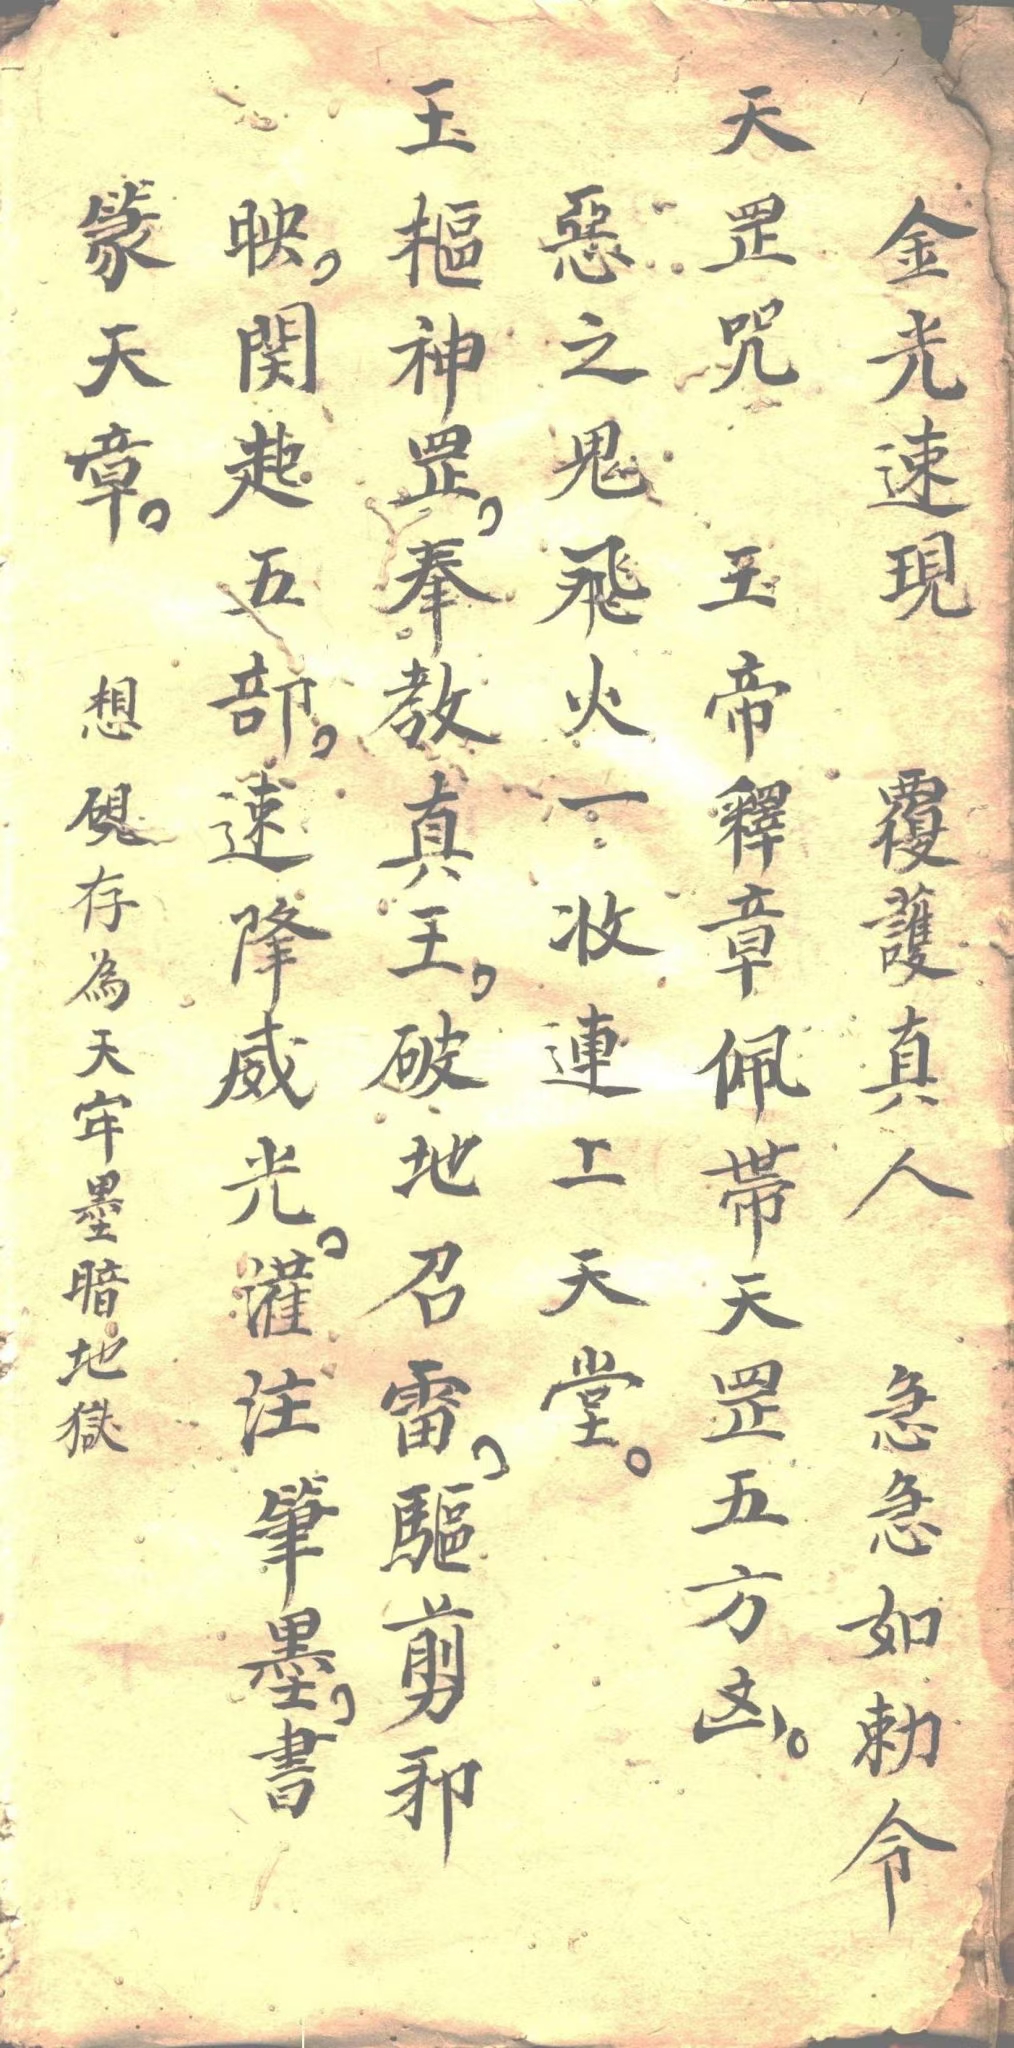 金光速現　覆護真人　急急如勅令
天罡咒　玉帝釋章佩帯天罡五方凶。
惡之鬼飛火一收連上天堂。
玉樞神罡。奉教真王。破地召雷。驅剪邪
映。関起五部。速降威光。灌注筆墨。書
篆天章。　想硯存為天牢墨暗地獄